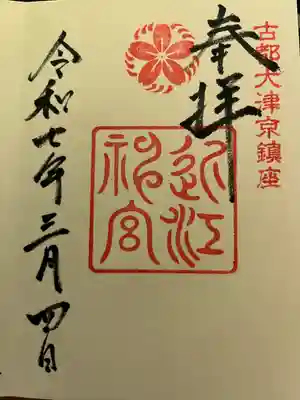 古都大津京鎮座
奉拝
近江
神宮
令和七年三月四日